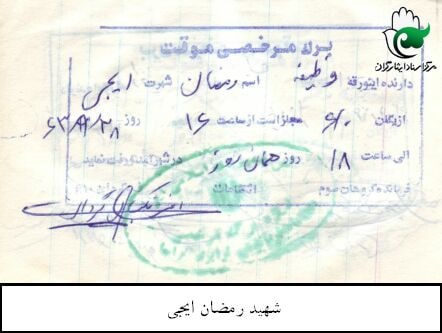 مرکز اسناد ایثارگران
برگ مرخصی موقت
دارنده اینورقه وظیفه اسم رمضان شهرت ایجی
از یگان مجاز است از ساعت ۱۶ روز ۶۳/۹/۲۸
الی ساعت ۱۸ روز همان روز در شهر آمد و رفت نماید
فرمانده گروهان سوم
شهید رمضان ایجی